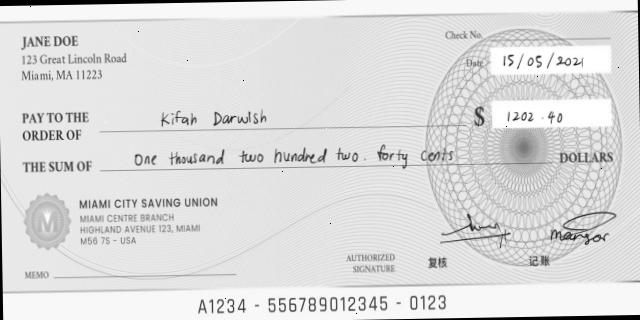 JANE DOE
123 Great Lincoln Road
Miami, MA 11223
Check No.
Date 15/05/2021
PAY TO THE
ORDER OF Kifah Darwish
$ 1202.40
THE SUM OF One thousand two hundred two. forty cents DOLLARS
MIAMI CITY SAVING UNION
MIAMI CENTRE BRANCH
HIGHLAND AVENUE 123, MIAMI
M56 7S - USA
M
MEMO
AUTHORIZED
SIGNATURE
复核
记账
mansor
A1234 - 556789012345 - 0123